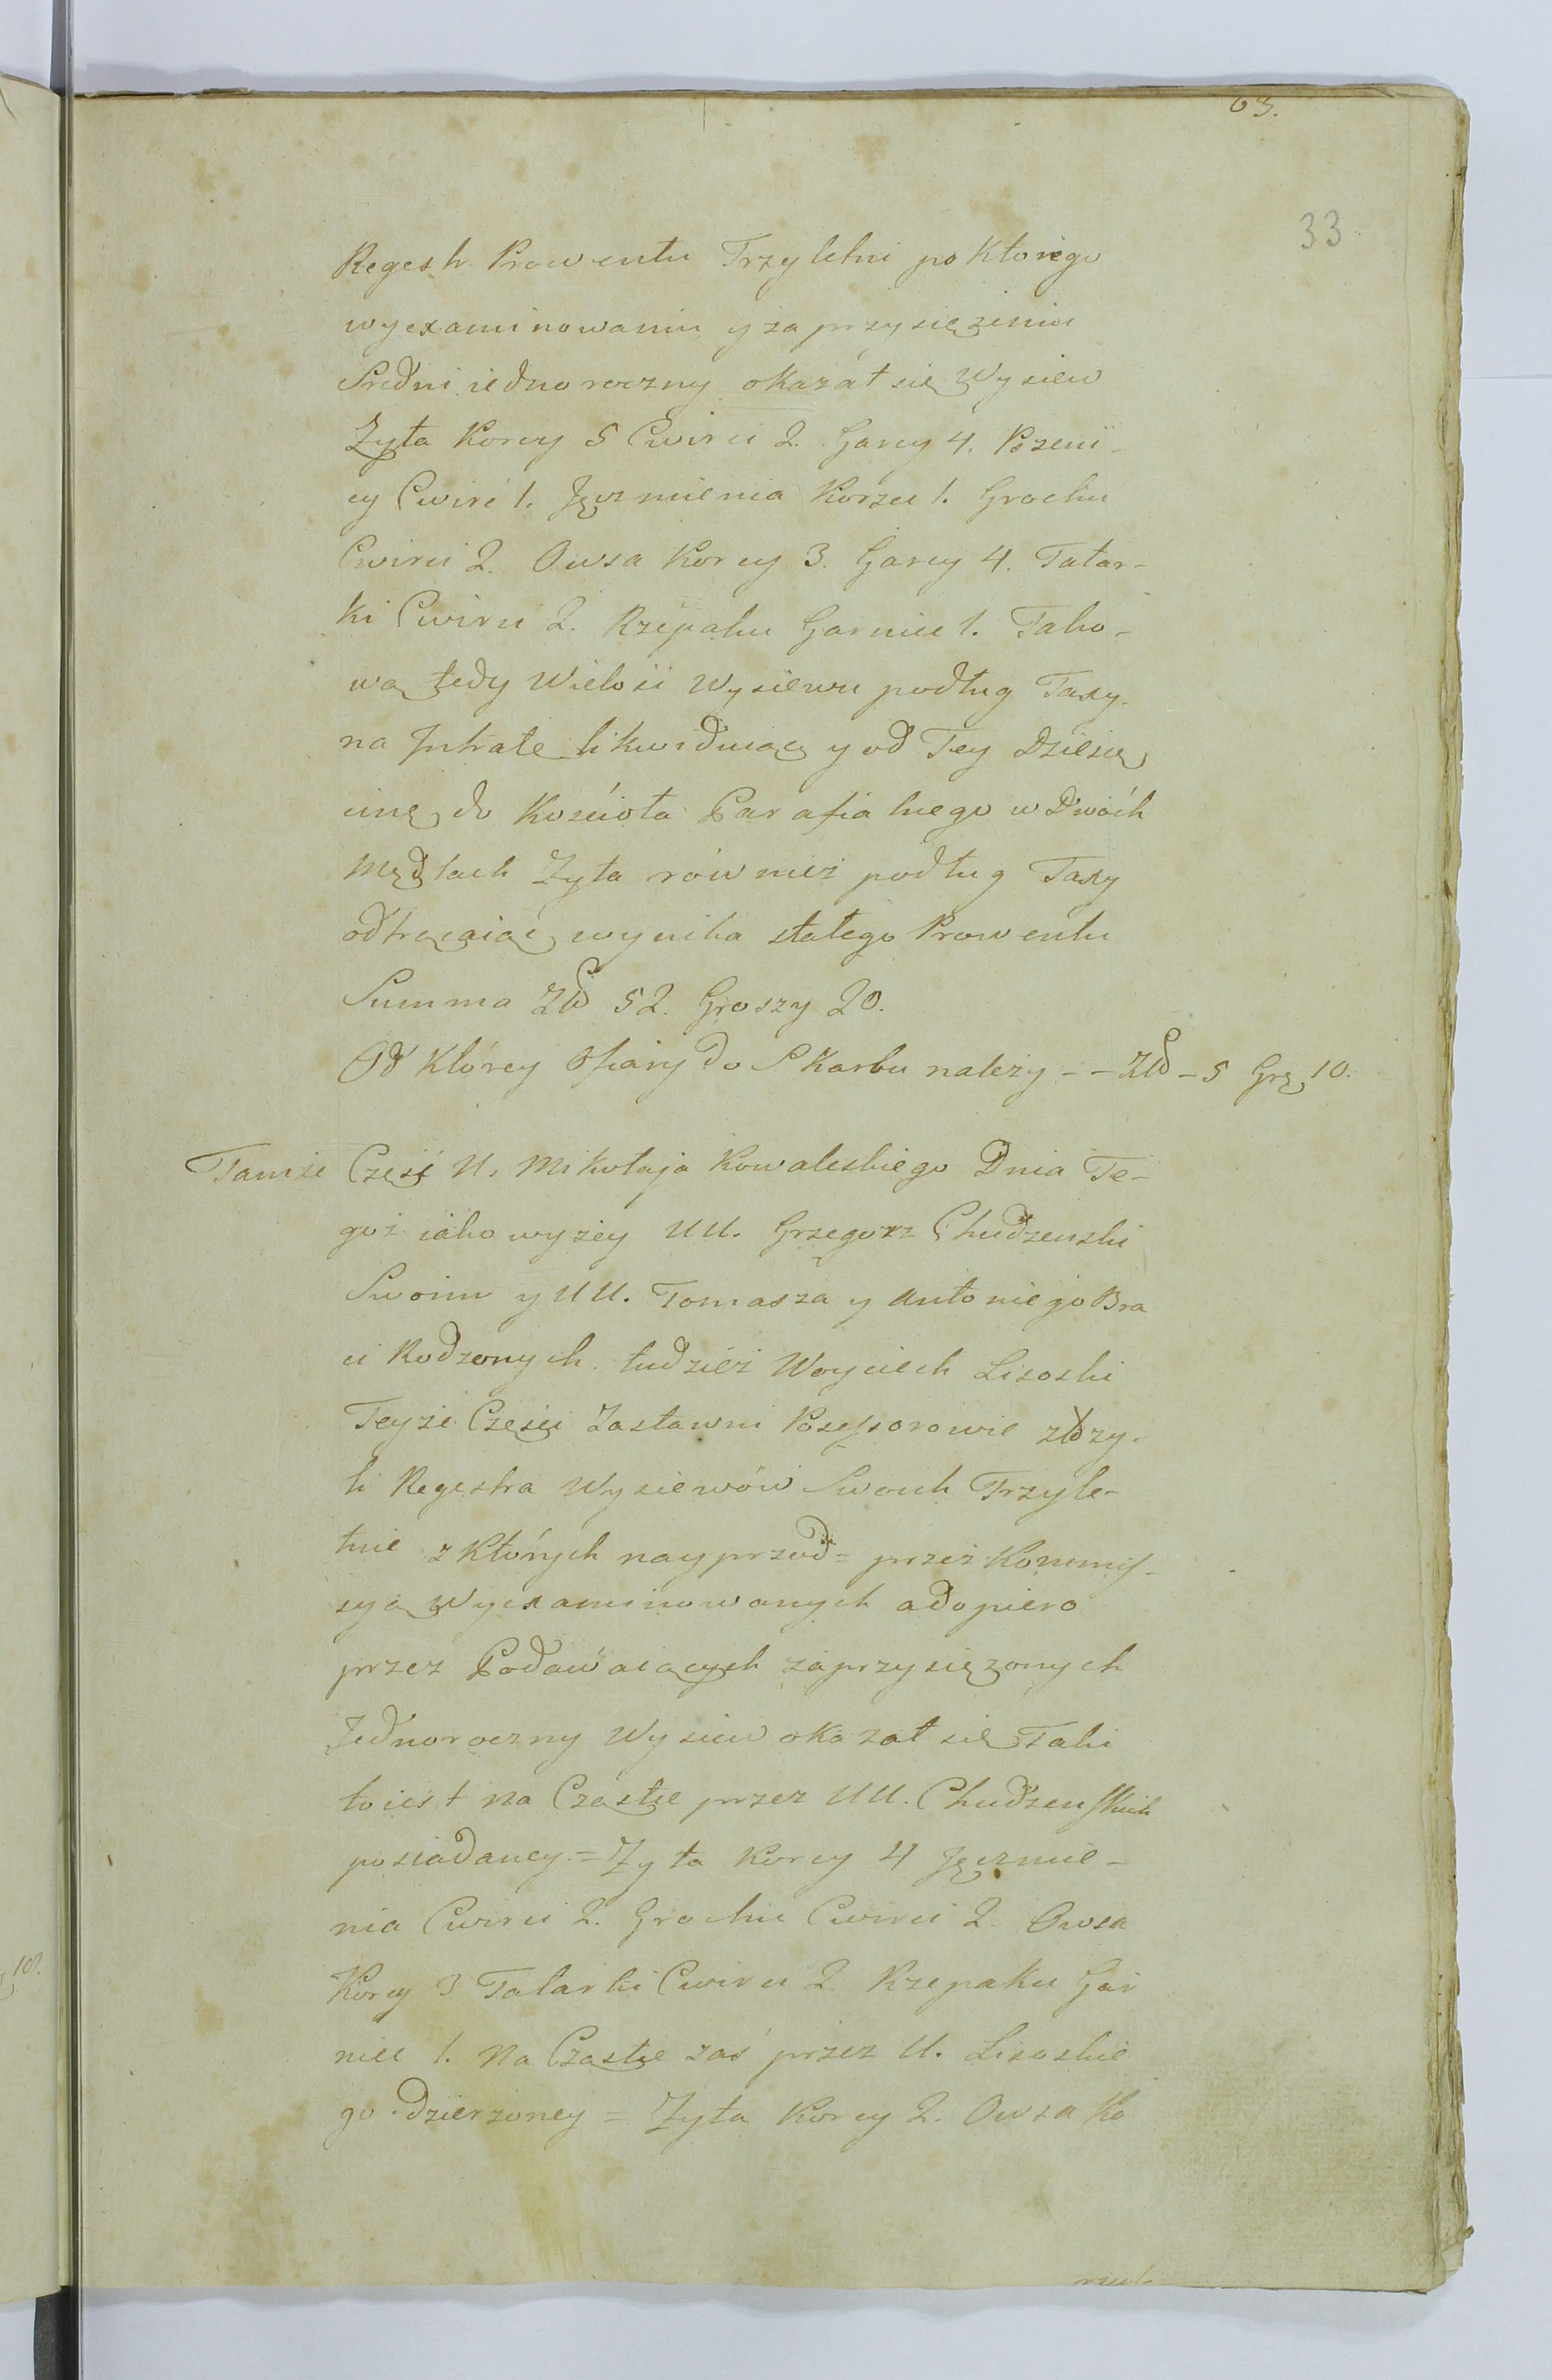 63.
33
Regestr Prowentu Trzyletni po Ktorego
wyexaminowaniu y zaprzysiężeniu
Sredni iednoroczny okazał się Wysiew
Zyta Korcy 5 Cwirci 2. Garcy 4. Pszeni-
cy Cwirć 1. Jęczmienia Korzec 1. Grochu
Cwirci 2. Owsa Korcy 3. Garcy 4. Tatar-
ki Cwirci 2. Rzepaku Garniec 1. Tako-
wą tedy Wielość Wysiewu podług Taxy
na Jntratę likwiduiąc y od Tey Dziesię
cinę do Kościoła Parafialnego w Dwóch
Mędlach Zyta również podług Taxy
odtrącaiąc wynika stałego Prowentu
Summa Złł 52. Groszy 20.
Od Którey Ofiary do Skarbu należy - - Złł - 5 Grę 10.
Tamże Część U. Mikołaja Kowaleskiego Dnia Te-
goż iako wyżey UU. Grzegorz Chudzenski
Swoim y UU. Tomasza y Antoniego Bra
ci Rodzonych tudzież Woyciech Lisoski
Teyże Części Zastawni Possessorowie złoży-
li Regestra Wysiewów Swoich Trzyle-
tnie z Których nayprzod = przez Kommis-
syą Wyexaminowanych a dopiero
przez Podawaiących zaprzysiężonych
Jednoroczny Wysiew okazał się Taki
to iest Na Cząstce przez UU. Chudzenskich
posiadaney = Zyta Korcy 4 Jęczmie-
nia Cwirci 2. Grochu Cwirci 2. Owsa
Korcy 3 Tatarki Cwirci 2. Rzepaku Gar
niec 1. Na Cząstce zaś przez U. Lisoskie
go dzierżoney = Zyta Korcy 2. Owsa Ko
10.